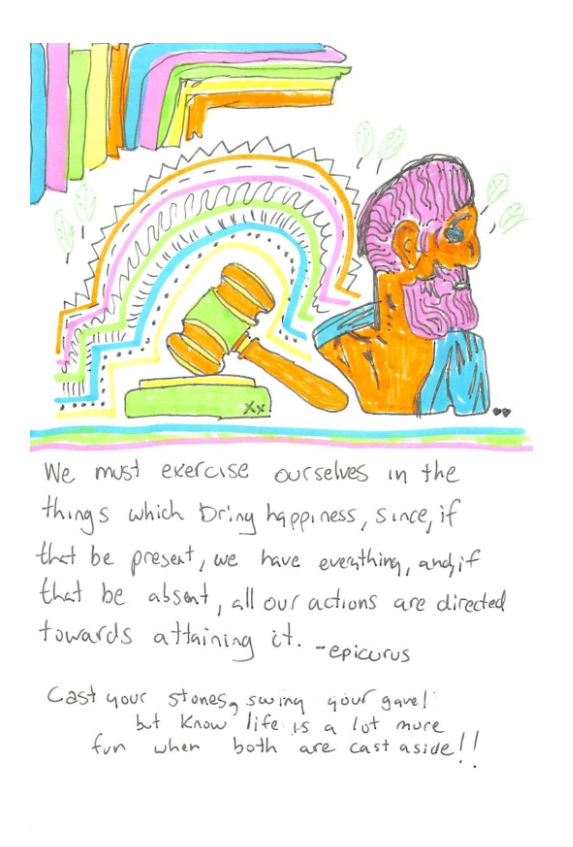 xx
We must exercise ourselves in the
things which bring happiness, since, if
that be present, we have everything, and, if
that be absent, all our actions are directed
towards attaining it. -epicurus
Cast your stones, swing your gavel
but know life is a lot more
fun when both are cast aside!!